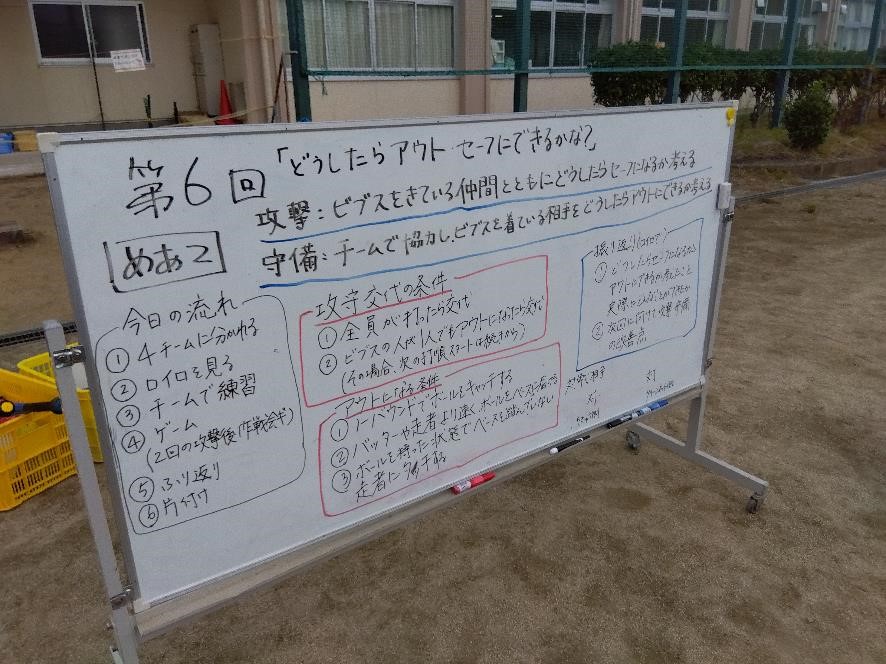 第6回
「どうしたらアウト・セーフにできるかな?」
めあて
攻撃:ビブスをきている仲間とともにどうしたらセーフになるか考える
守備:チームで協力し、ビブスを着ている相手をどうしたらアウトにできるか考える
今日の流れ
① 4チームに分かれる
② ロイロを見る
③ チームで練習
④ ゲーム
(2回の攻撃後、作戦会ギ)
⑤ ふり返り
⑥ 片付け
攻守交代の条件
① 全員が打ったら交代
② ビブスの人が1人でもアウトになったら交代
(その場合、次の打順スタートは続きから)
アウトになる条件
① ノーバウンドでボールをキャッチする
② バッターや走者より速くボールをベースに
③ ボールを持った状態でベースを踏んでいない
走者にタッチする
振り返り(ロイロで)
① どうしたらセーフになるか
アウトにできるか考えたこと
実際
② 次回に向けて攻撃・守備
の改善点
対戦相手
対
対